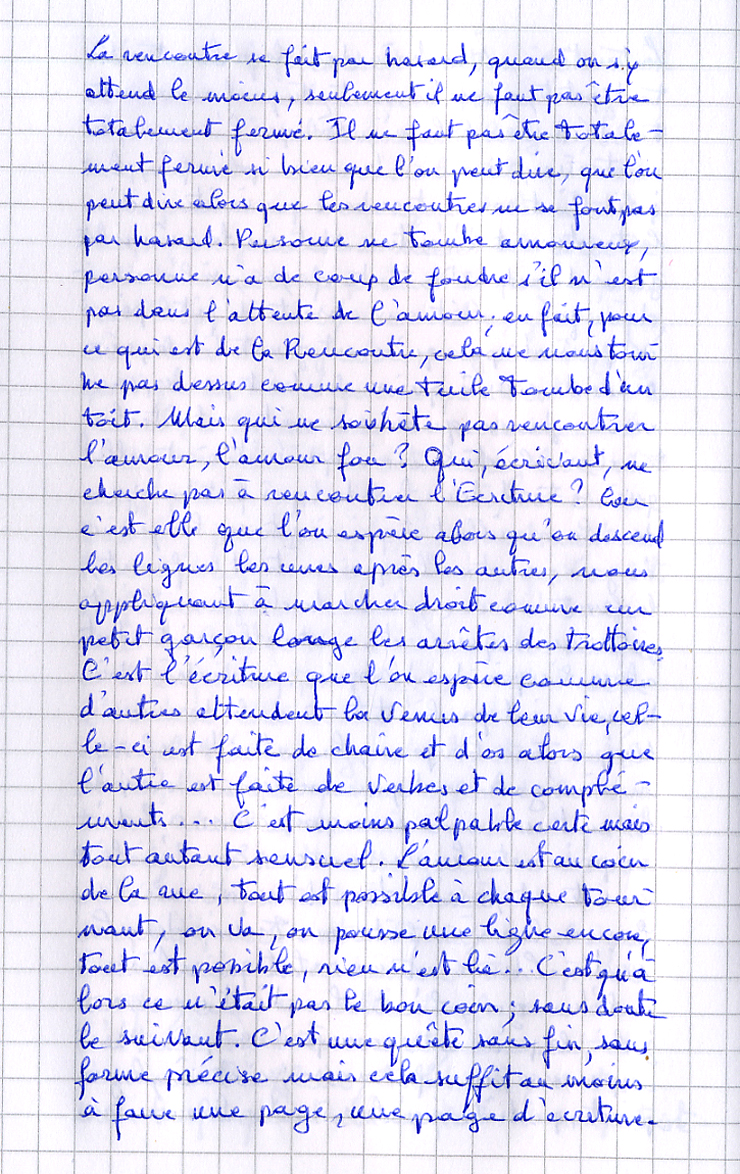 La rencontre se fait par hasard, quand on s'y
attend le moins, seulement il ne faut pas être
totalement fermé. Il ne faut pas être totale-
ment fermé si bien que l'on peut dire, que l'on
peut dire alors que les rencontres ne se font pas
par hasard. Personne ne tombe amoureux,
personne n'a de coup de foudre s'il n'est
pas dans l'attente de l'amour; en fait, pour
ce qui est de la Rencontre, cela ne nous tom
be pas dessus comme une tuile tombe d'un
toit. Mais qui ne souhête pas rencontrer
l'amour, l'amour fou ? Qui, écrivant, ne
cherche pas à rencontrer l'Ecriture ? Car
c'est elle que l'on espère alors qu'on descend
les lignes les unes après les autres, nous
appliquant à marcher droit comme un
petit garçon longe les arrêtes des trottoires.
C'est l'écriture que l'on espère comme
d'autres attendent la Venus de leur vie, cel-
le-ci est faite de chaire et d'os alors que
l'autre est faite de verbes et de complé-
ments... C'est moins palpable certe mais
tout autant sensuel. L'amour est au coin
de la rue, tout est possible à chaque tour
nant, on va, on pousse une ligne encore,
tout est possible, rien n'est lié... C'est qu'a
lors ce n'était pas le bon coin; sans doute
le suivant. C'est une quête sans fin, sans
forme précise mais cela suffit au moins
à faire une page, une page d'ecriture.